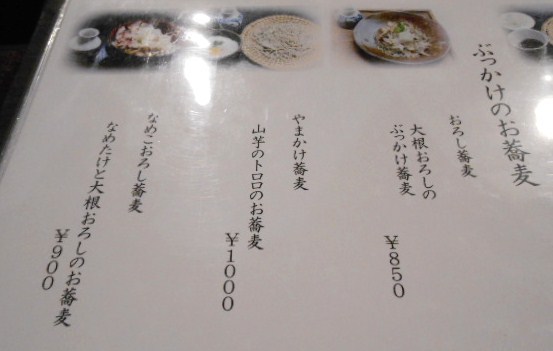 ぶっかけのお蕎麦
おろし蕎麦
大根おろしの
ぶっかけ蕎麦
￥850
やまかけ蕎麦
山芋のトロロのお蕎麦
￥1000
なめこおろし蕎麦
なめたけと大根おろしのお蕎麦
￥900